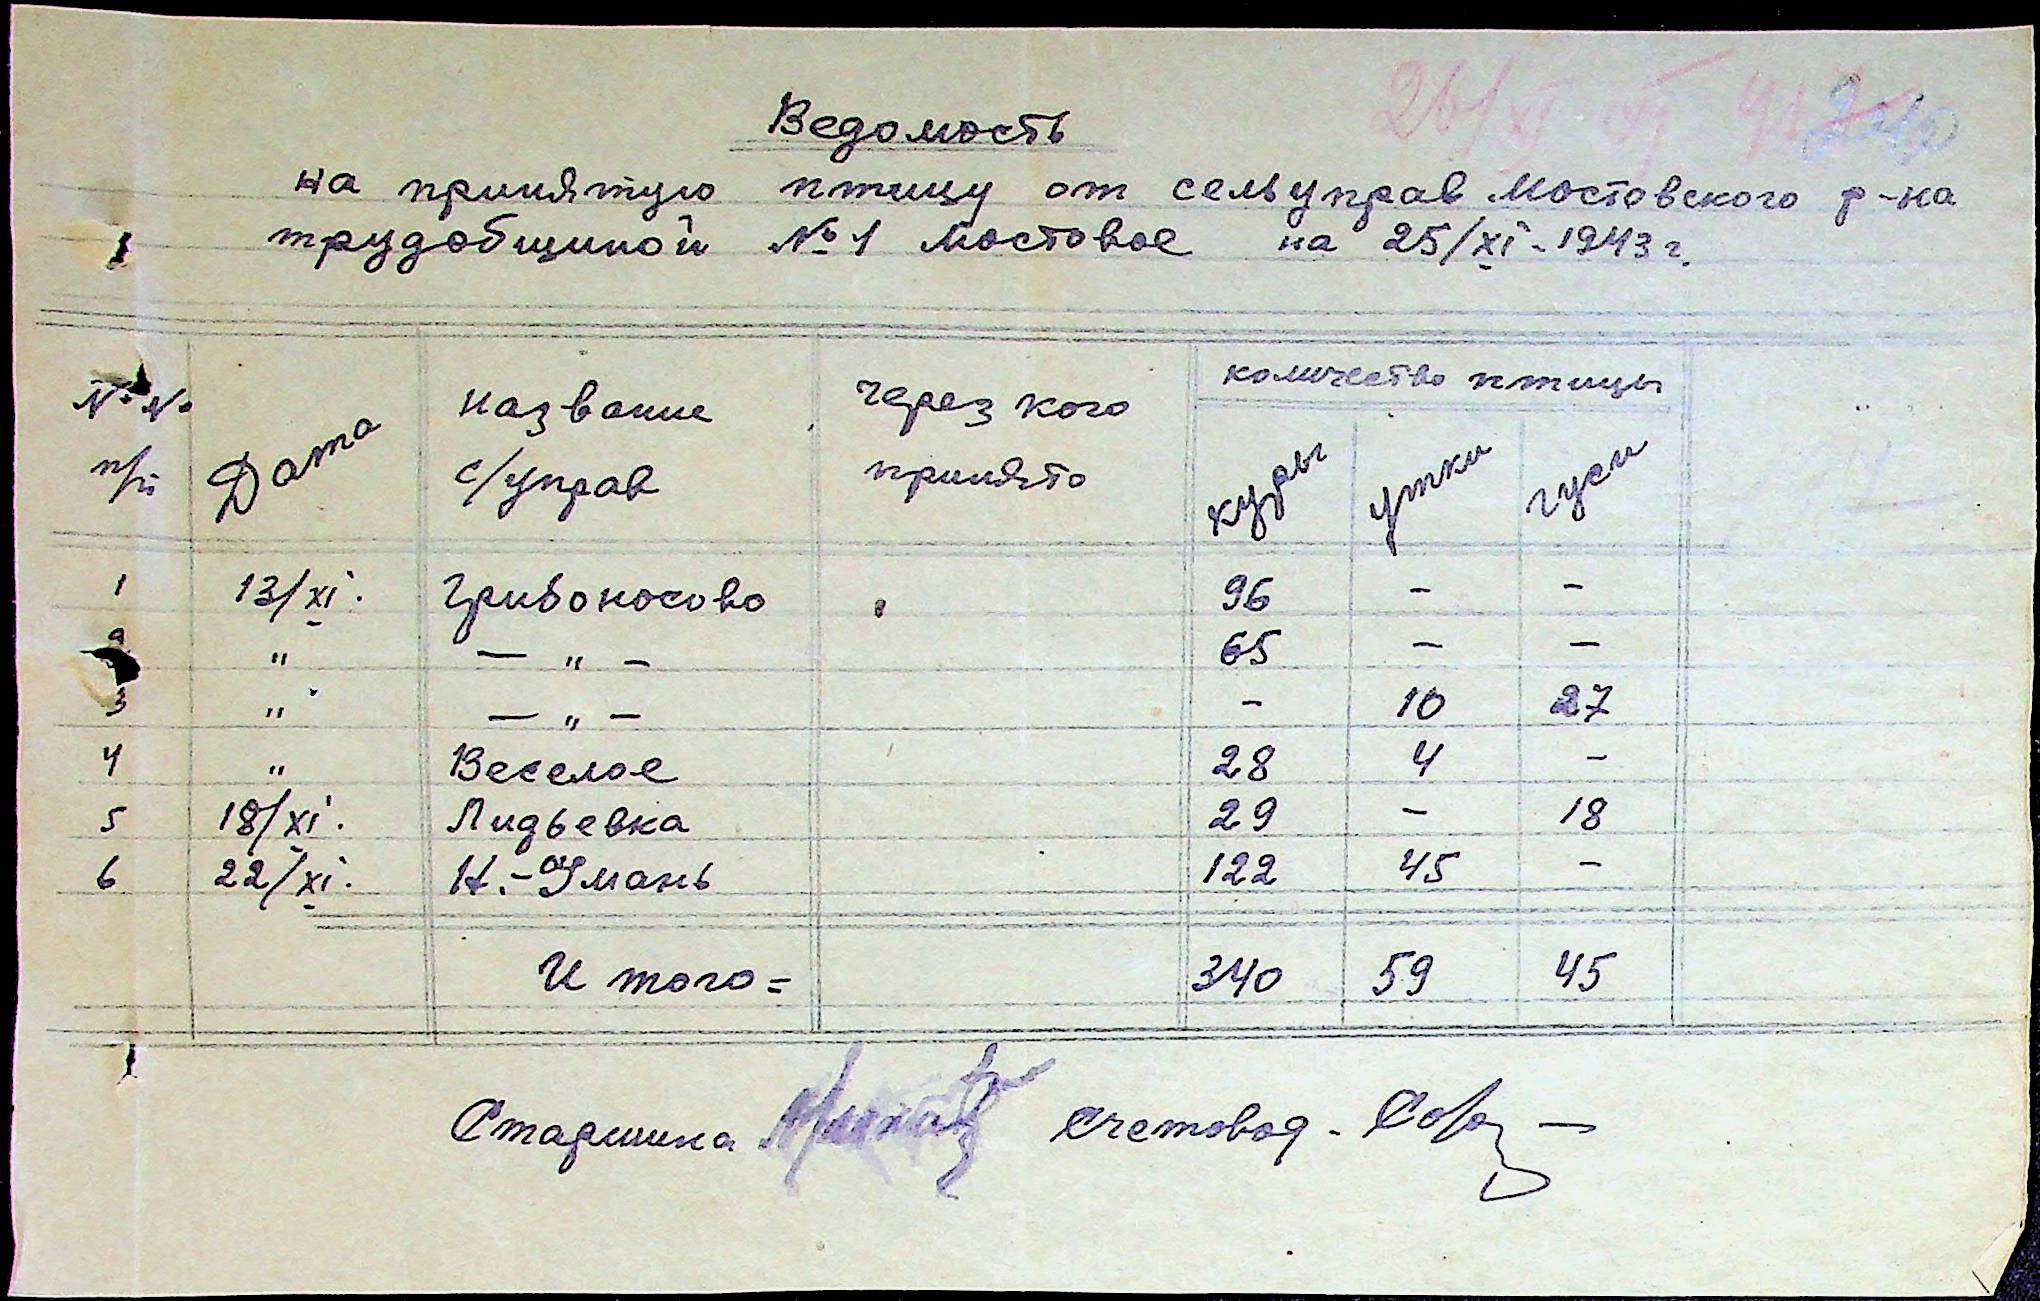 Ведомость
на принятую птицу от сельуправ Мостовского р-на
трудобщиной № 1 Мостовое на 25/XI-1943 г.
№ № Дата название через кого количество птицы
п/п с/управ принято куры утки гуси
1 13/XI. Гривоносово 96 - -
2 " — " — 65 - -
3 " — " — - 10 27
4 " Веселое 28 4 -
5 18/XI. Лидьевка 29 - 18
6 22/XI. Н.-Умань 122 45 -
Итого = 340 59 45
Старшина Счетовод -